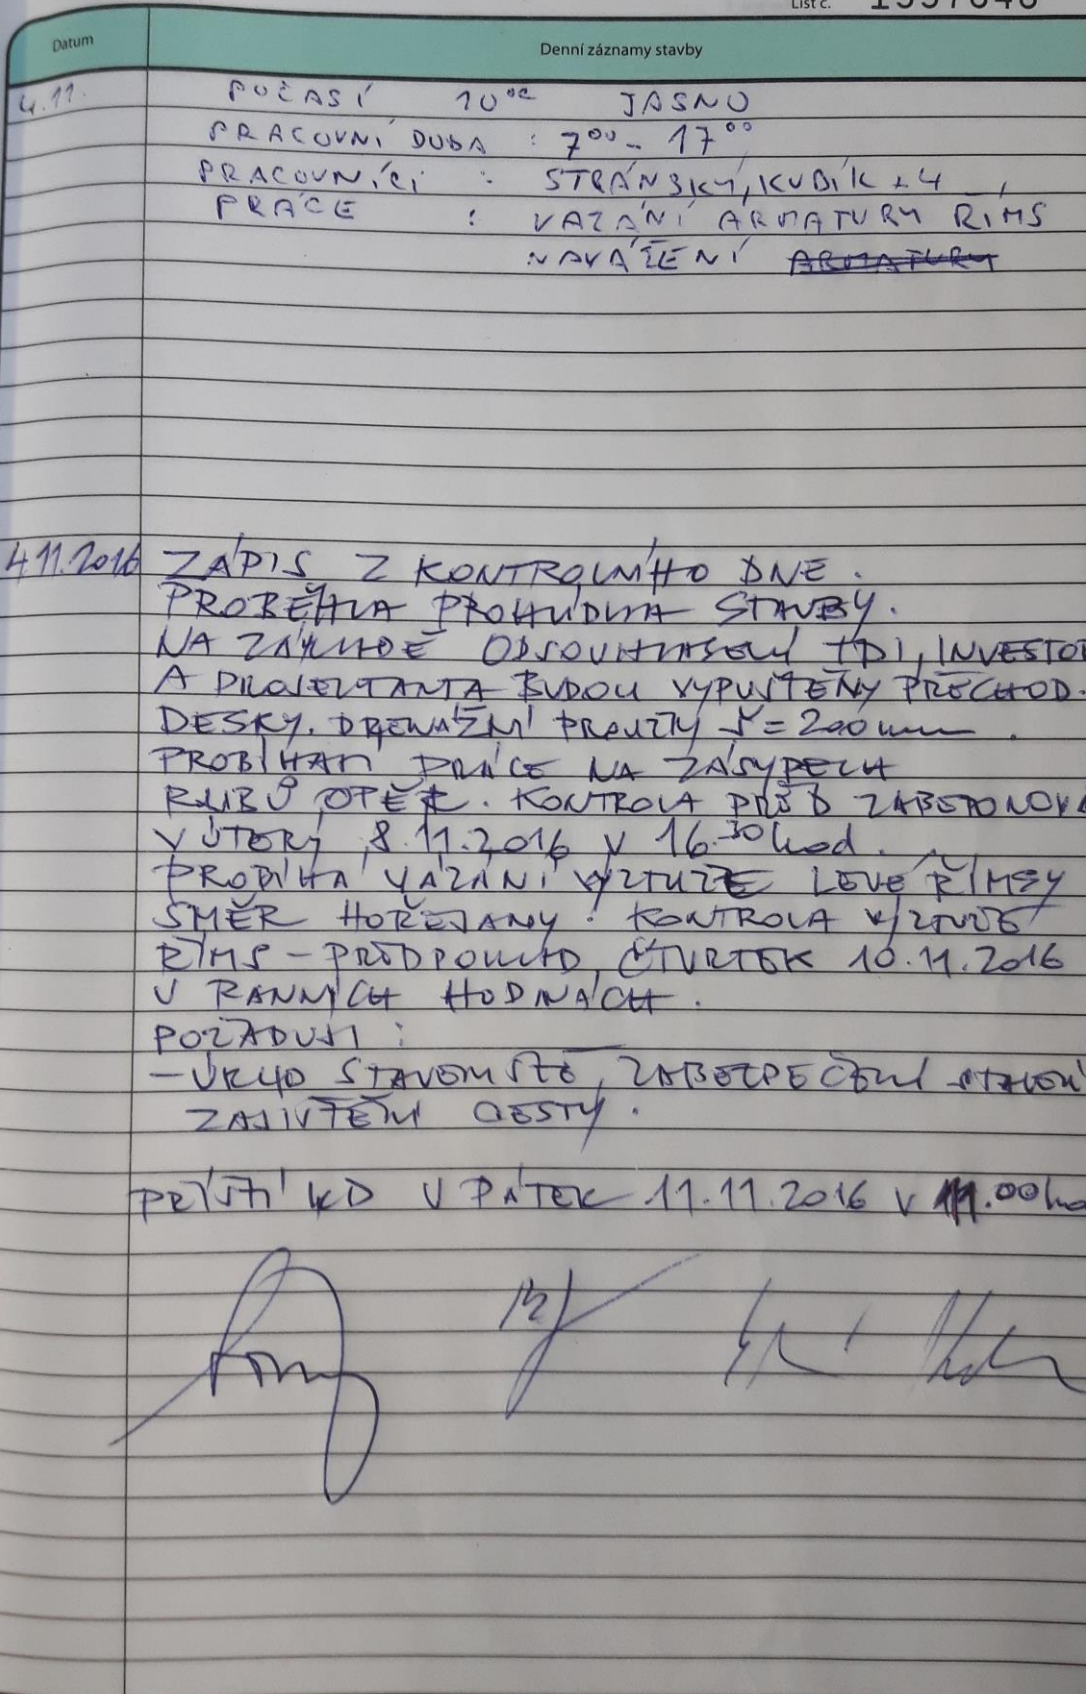 List č.
Datum Denní záznamy stavby
4.11. POČASÍ 10°C JASNO
PRACOVNÍ DOBA : 7⁰⁰ - 17⁰⁰
PRACOVNÍCI : STRÁNSKÝ, KUBÍK + 4
PRÁCE : VAZÁNÍ ARMATURY ŘÍMS
NAVÁŽENÍ ARMATURY
4.11.2016 ZÁPIS Z KONTROLNÍHO DNE.
PROBĚHLA PROHLÍDKA STAVBY.
NA ZÁKLADĚ ODSOUHLASENÍ TDI, INVESTO
A PROJEKTANTA BUDOU VYPUŠTĚNY PŘECHOD.
DESKY. DRENÁŽNÍ PROUŽKY Š = 200 mm.
PROBÍHAJÍ PRÁCE NA ZÁSYPECH
RUBŮ OPĚR. KONTROLA PŘED ZABETONOVÁ
V ÚTERÝ 8.11.2016 V 16.30 hod.
PROBÍHÁ VÁZÁNÍ VÝZTUŽE LEVÉ ŘÍMSY
SMĚR HOŘEJANY. KONTROLA VÝZTUŽE
ŘÍMS - PŘEDPOKLAD, ČTVRTEK 10.11.2016
V RANNÍCH HODINÁCH.
POŽADUJI :
- ÚKLID STAVENIŠTĚ, ZABEZPEČENÍ STAVEN
ZAJIŠTĚNÍ CESTY.
PŘÍŠTÍ KD V PÁTEK 11.11.2016 V 11.00 ho